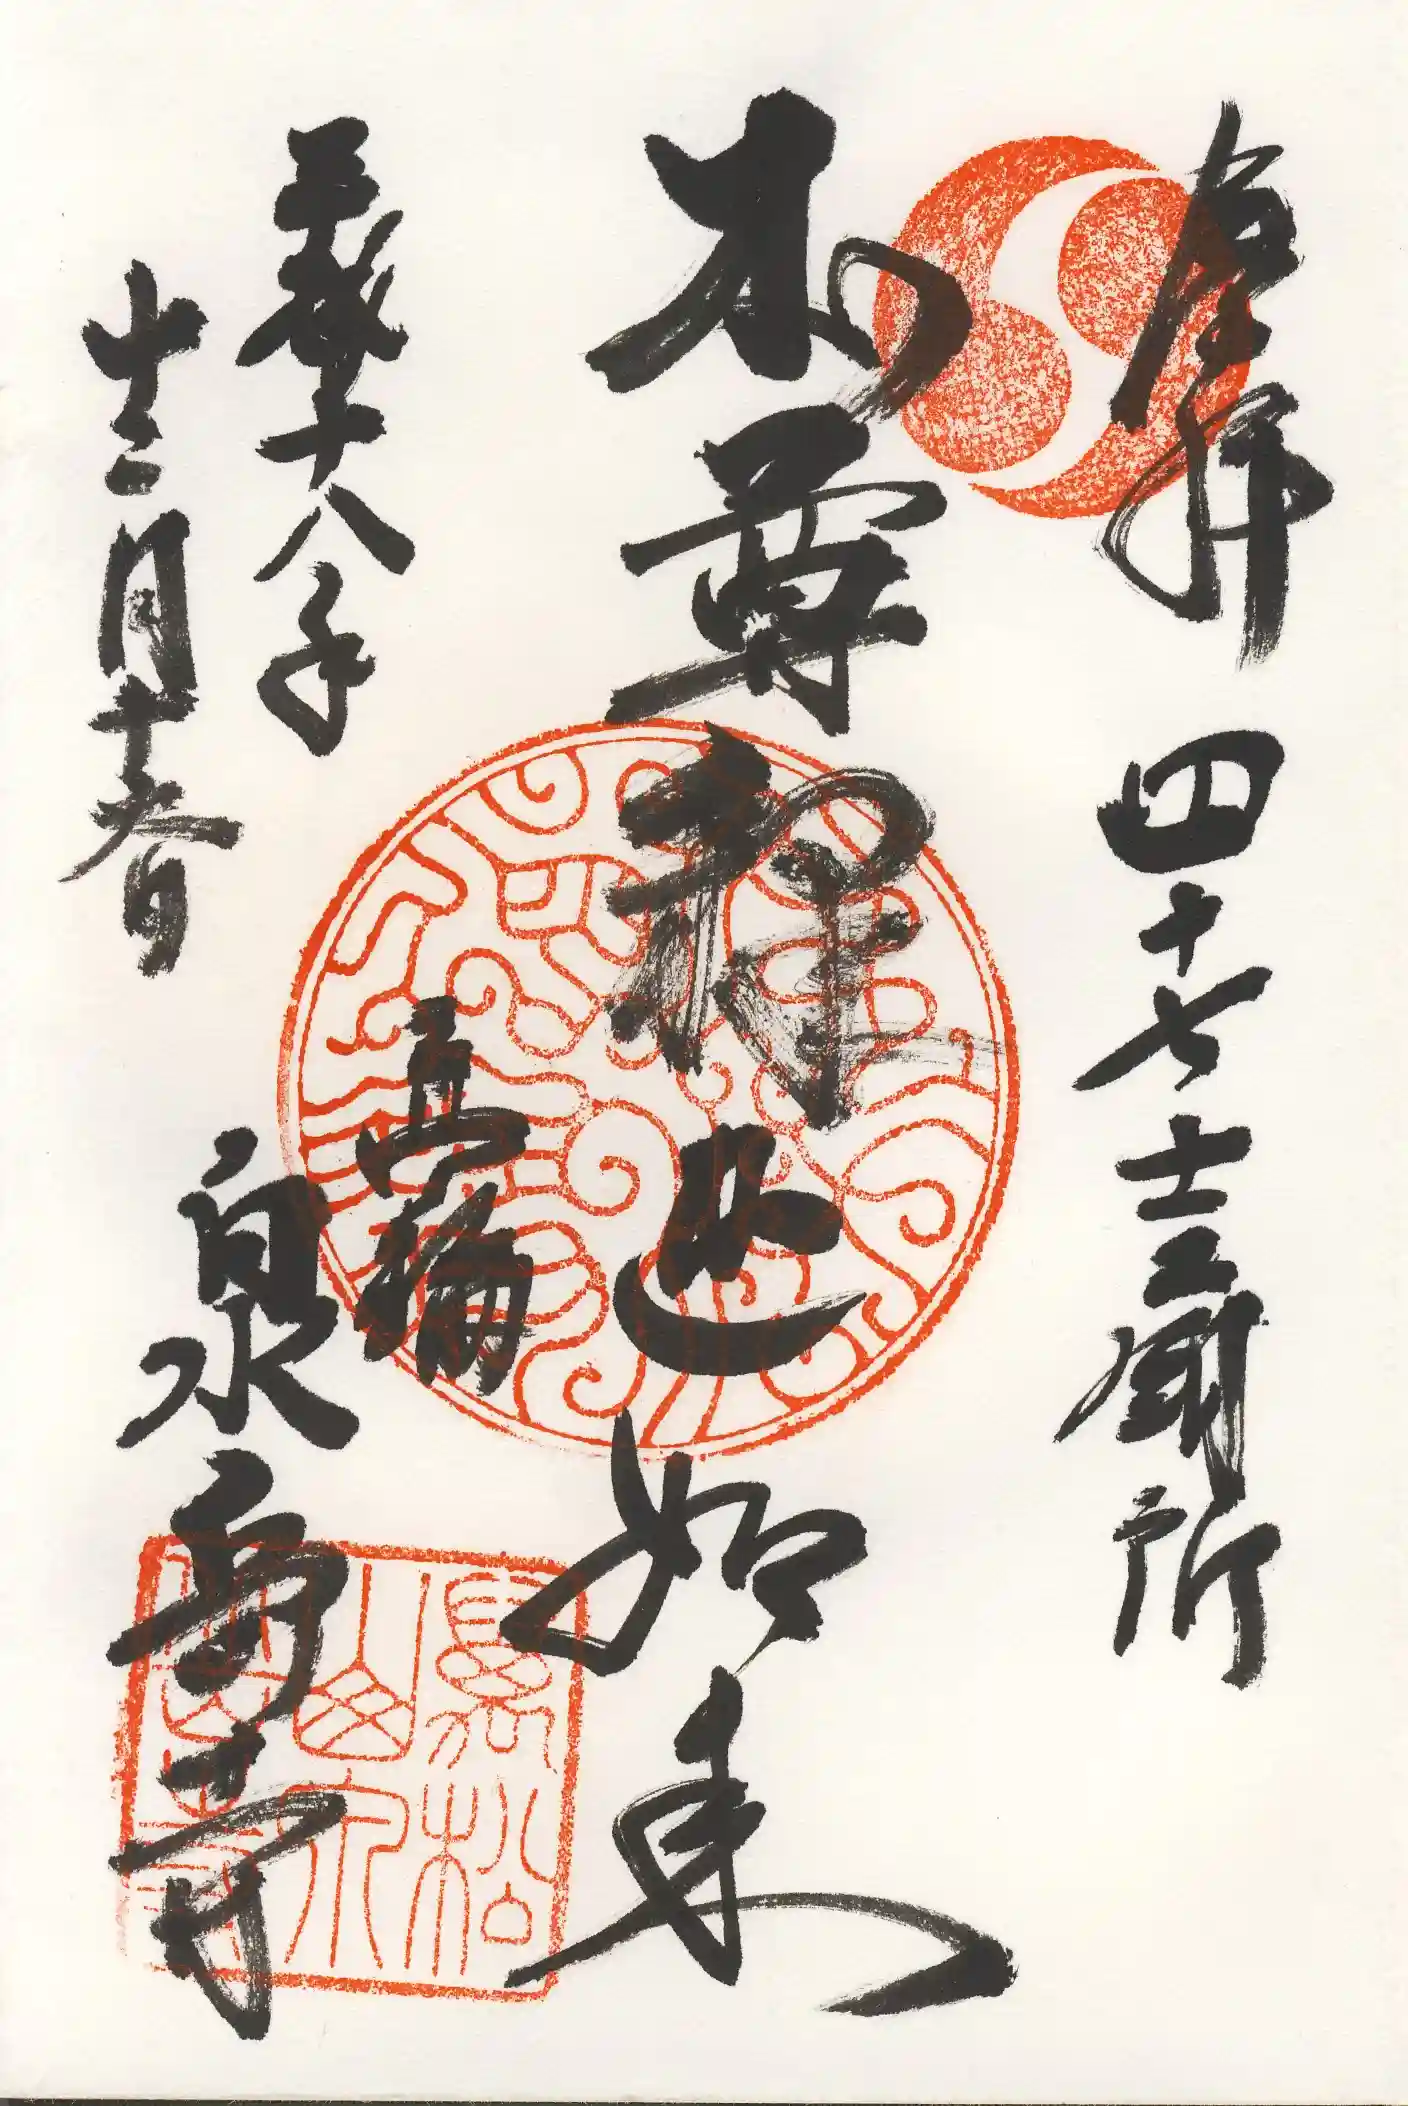 奉拝 四十七士 所
本尊釋迦如来
高輪
泉岳寺
平成十八年
十二月 日
萬松
山泉
岳寺